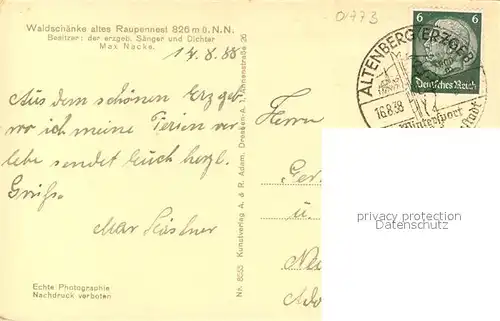 Waldschänke altes Raupennest 826 m ü. N. N.
Besitzer: der erzgeb. Sänger und Dichter
Max Nacke.
14.8.38
Aus dem schönen Erzgeb
wo ich meine Ferien ver-
lebe sendet Euch herzl.
Grüße
Max
Echte Photographie
Nachdruck verboten
Nr. 8655 Kunstverlag A. & R. Adam, Dresden-A. 1, Annenstraße 26
01773
ALTENBERG (ERZGEB
16.8.38
Wintersport
stadt
6 6
Deutsches Reich
Herrn
u.
privacy protection
www.ansichtskarten-center.de